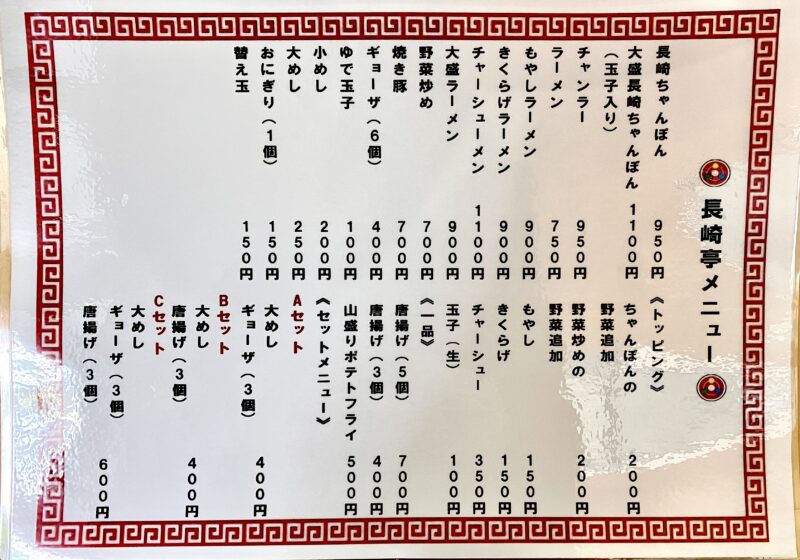 長崎亭メニュー
長崎ちゃんぽん ９５０円
大盛長崎ちゃんぽん １１００円
（玉子入り）
チャンラー ９５０円
ラーメン ７５０円
もやしラーメン ９００円
きくらげラーメン ９００円
チャーシューメン １１００円
大盛ラーメン ９００円
野菜炒め ７００円
焼き豚 ７００円
ギョーザ（６個） ４００円
ゆで玉子 １００円
小めし ２００円
大めし ２５０円
おにぎり（１個） １５０円
替え玉 １５０円
《トッピング》
ちゃんぽんの ２００円
野菜追加
野菜炒めの ２００円
野菜追加
もやし １５０円
きくらげ １５０円
チャーシュー ３５０円
玉子（生） １００円
《一品》
唐揚げ（５個） ７００円
唐揚げ（３個） ４００円
山盛りポテトフライ ５００円
《セットメニュー》
Ａセット
大めし ４００円
ギョーザ（３個）
Ｂセット
大めし ４００円
唐揚げ（３個）
Ｃセット
大めし
ギョーザ（３個） ６００円
唐揚げ（３個）